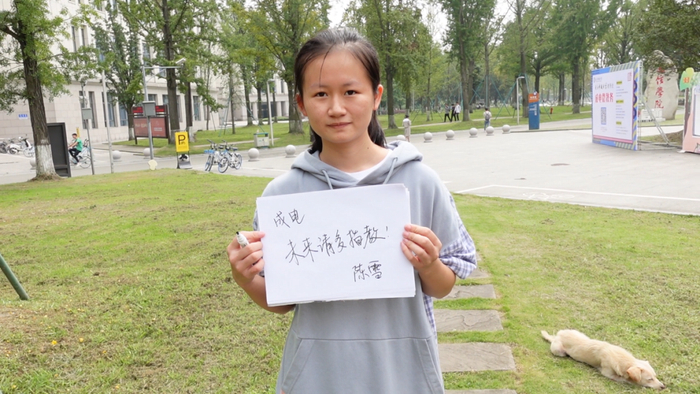 成电
未来请多指教！
陈雪
P